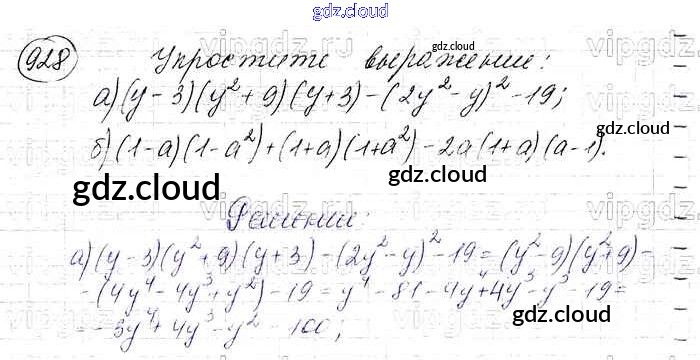 gdz.cloud
928 Упростите выражение:
gdz.cloud
а) (y-3)(y²+9)(y+3)-(2y²-y)²-19;
б) (1-a)(1-a²)+(1+a)(1+a²)-2a(1+a)(a-1).
gdz.cloud
gdz.cloud gdz.cloud
Решение:
а) (y-3)(y²+9)(y+3)-(2y²-y)²-19=(y²-9)(y²+9)-
-(4y⁴-4y³+y²)-19=y⁴-81-4y⁴+4y³-y²-19=
=-3y⁴+4y³-y²-100;
gdz.cloud gdz.cloud